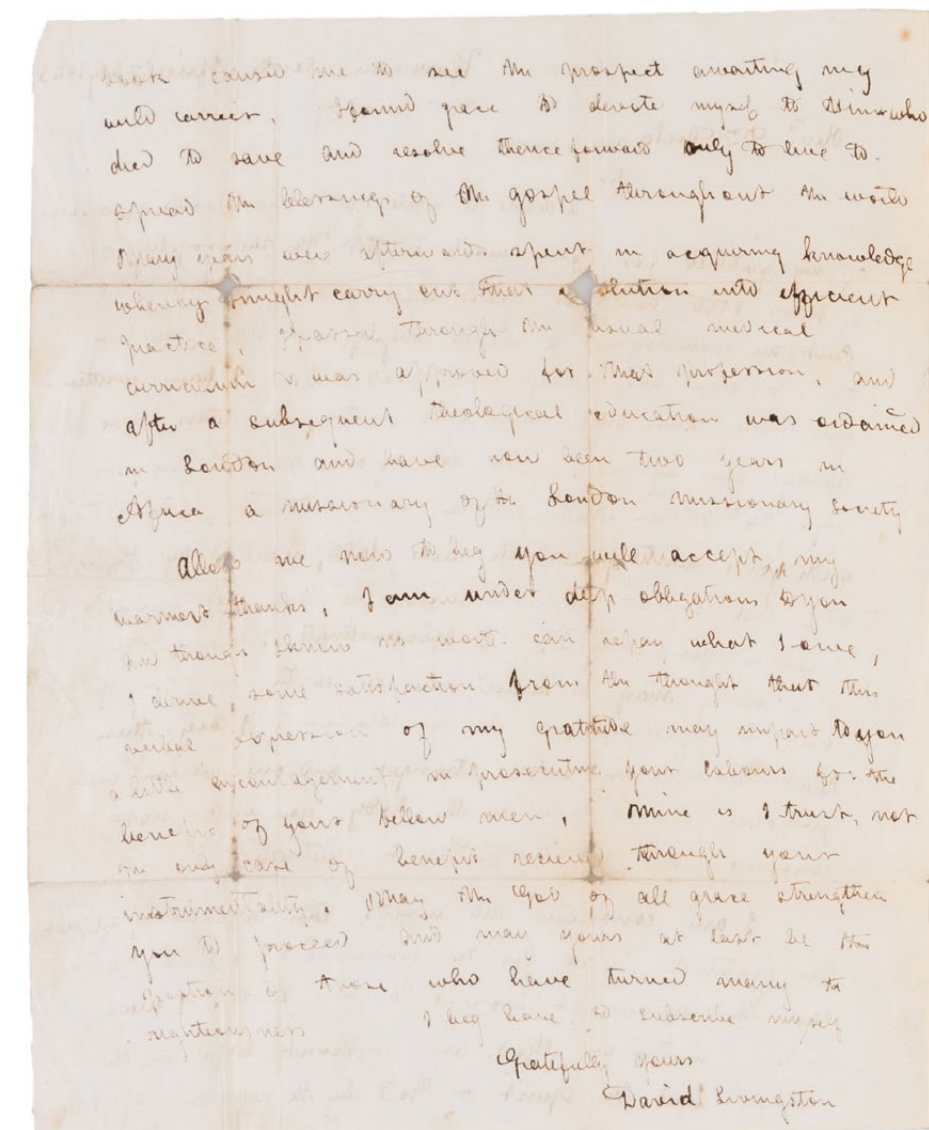 book caused me to see the prospect awaiting my
wild carrier. I found grace to devote myself to Him who
died to save and resolve thenceforward only to live to
spread the blessings of the gospel throughout the world
Many years were afterwards spent in acquiring knowledge
whereby I might carry out that resolution into efficient
practice. I passed through the usual medical
curriculum & was approved for that profession, and
after a subsequent theological education was ordained
in London and have now been two years in
Africa a missionary of the London missionary Society
Allow me now to beg you will accept my
warmest thanks, I am under deep obligations to you
and though I know no can repay what I owe,
I derive some satisfaction from the thought that this
verbal expression of my gratitude may impart to you
a little encouragement in prosecuting your labours for the
benefit of your fellow men, Mine is I trust, not
the only case of benefit recieved through your
instrumentality. May the God of all grace strengthen
you to proceed and may yours at last be the
portion of those who have turned many to
righteousness I beg leave to subscribe myself
Gratefully yours
David Livingston